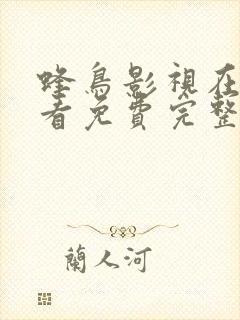 蜂鳥影視在
看免費完整
蘭人河